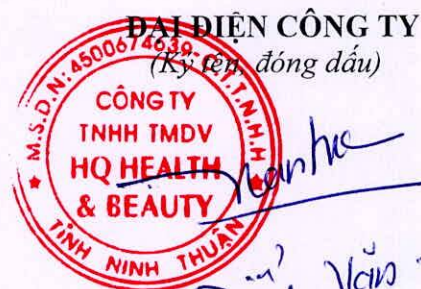 ĐẠI DIỆN CÔNG TY
(Ký tên, đóng dấu)
M.S.D.N: 4500674639-C.T.T.N.H.H
CÔNG TY
TNHH TMDV
HQ HEALTH
& BEAUTY
TỈNH NINH THUẬN
Văn